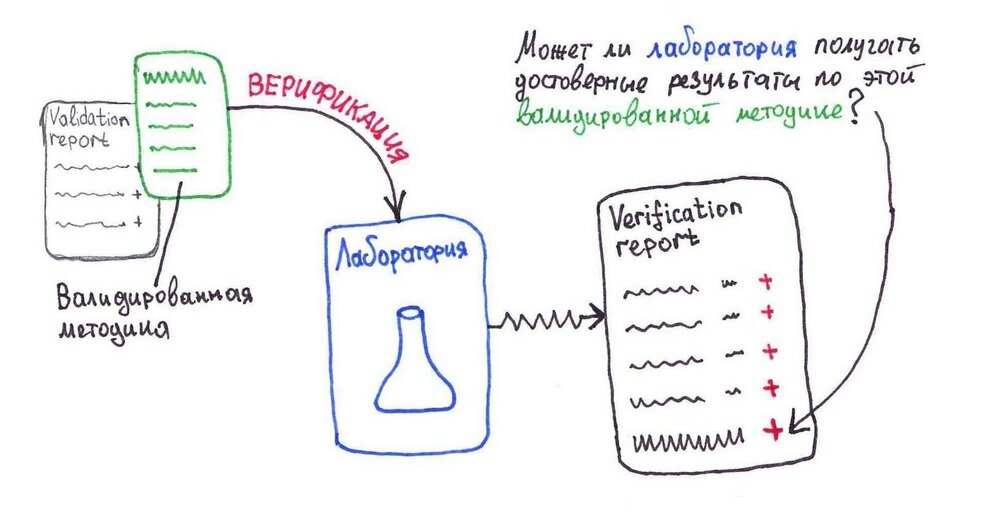 Validation
report
Валидированная
методика
ВЕРИФИКАЦИЯ
Лаборатория
Может ли лаборатория получать
достоверные результаты по этой
валидированной методике?
Verification
report